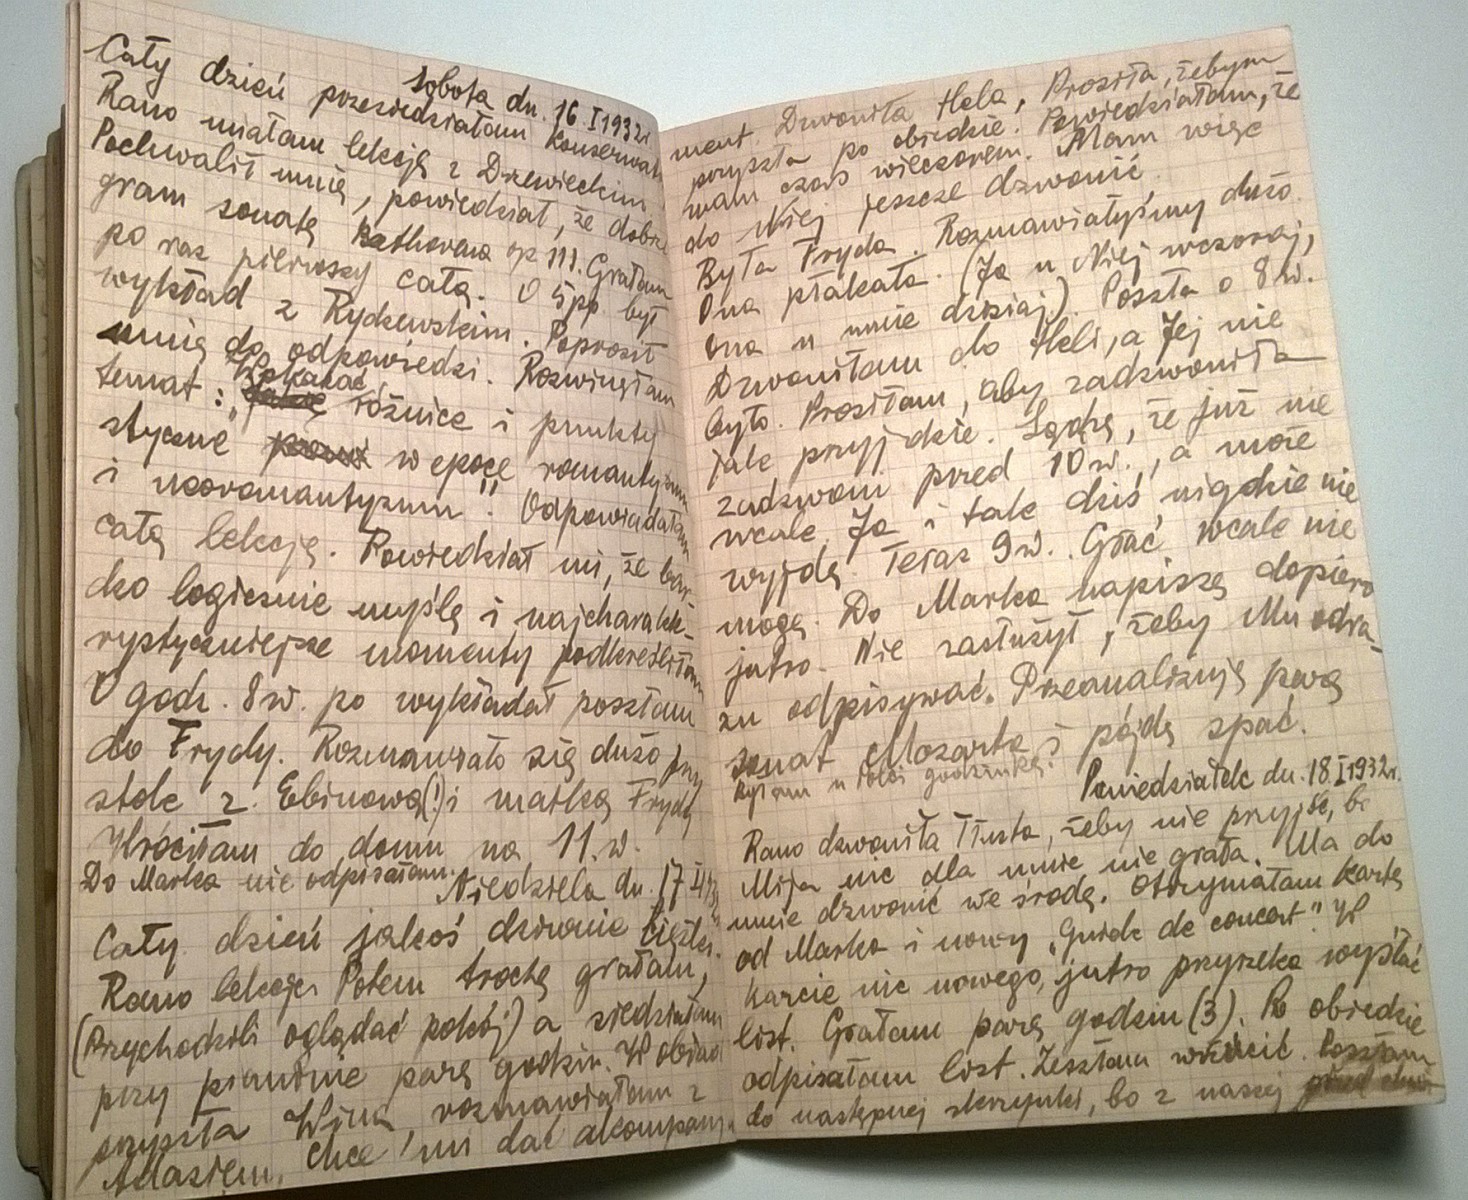 Sobota dn. 16.I 1932r.
Cały dzień przesiedziałam Konserwat
Rano miałam lekcję z Drzewieckim.
Pochwalił mnię, powiedział, że dobrze
gram sonatę Bethovena op 111. Grałam
po raz pierwszy całą. O 5 pp. był
wykład z Rydzewskim. Poprosił
mnię do odpowiedzi. Rozwinęłam
temat: „Wykazać różnice i punkty
styczne w epoce romantyzmu
i neoromantyzmu". Odpowiadałam
całą lekcję. Powiedział mi, że bar-
dzo logicznie myślę i najcharakte-
rystyczniejsze momenty podkreśliłam
O godz. 8 w. po wykładał poszłam
do Frydy. Rozmawiało się dużo przy
stole z Ebinową(!) i matką Frydy
Wróciłam do domu na 11 w.
Do Marka nie odpisałam.
Niedziela dn. 17.I
Cały dzień jakoś dziwnie ciężki.
Rano lekcje. Potem trochę grałam,
(Przychodzili oglądać pokój) a siedziałam
przy pianinie parę godzin. W obiad
przyszła rozmawiałam z
Adasiem. Chce mi dać akompan
ment. Dzwoniła Hela, Prosiła, żebym
przyszła po obiedzie. Powiedziałam, że
mam czas wieczorem. Mam więc
do Niej jeszcze dzwonić.
Była Fryda. Rozmawiałyśmy dużo.
Ona płakała. (Ja u Niej wczoraj,
ona u mnie dzisiaj). Poszła o 8 w.
Dzwoniłam do Heli, a Jej nie
było. Prosiłam, aby zadzwoniła
jak przyjdzie. Sądzę, że już nie
zadzwoni przed 10 w., a może
wcale. Ja i tak dziś nigdzie nie
wyjdę. Teraz 9 w. Grać wcale nie
mogę. Do Marka napiszę dopiero
jutro. Nie zasłużył, żeby Mu odra-
zu odpisywać. Przeanalizuję parę
sonat Mozarta i pójdę spać.
Byłam u godzinkę.
Poniedziałek dn. 18.I 1932r.
Rano dzwoniła Tłusta, żeby nie przyjść, bo
Mija nic dla mnie nie grała. Ma do
mnie dzwonić we środę. Otrzymałam kartę
od Marka i nowy „Guide de concert". W
karcie nic nowego, jutro przyrzeka wysłać
list. Grałam parę godzin (3). Po obiedzie
odpisałam list. Zeszłam wrzucić. Poszłam
do następnej skrzynki, bo z naszej przed